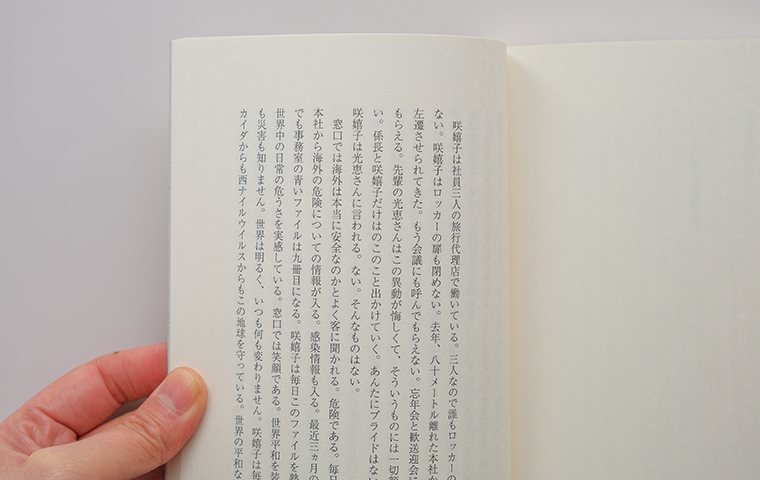 咲嬉子は社員三人の旅行代理店で働いている。三人なので誰もロッカーの
ない。咲嬉子はロッカーの扉も閉めない。去年、八十メートル離れた本社か
左遷させられてきた。もう会議にも呼んでもらえない。忘年会と歓送迎会に
もらえる。先輩の光恵さんはこの異動が悔しくて、そういうものには一切
い。係長と咲嬉子だけはのこのこと出かけていく。あんたにプライドはない
咲嬉子は光恵さんに言われる。ない。そんなものはない。
窓口では海外は本当に安全なのかとよく客に聞かれる。危険である。毎日
本社から海外の危険についての情報が入る。感染情報も入る。最近三ヵ月の
でも事務室の青いファイルは九冊目になる。咲嬉子は毎日このファイルを熟
世界中の日常の危うさを実感している。窓口では笑顔である。世界平和を装
も災害も知りません。世界は明るく、いつも何も変わりません。咲嬉子は毎
カイダからも西ナイルウイルスからもこの地球を守っている。世界の平和な